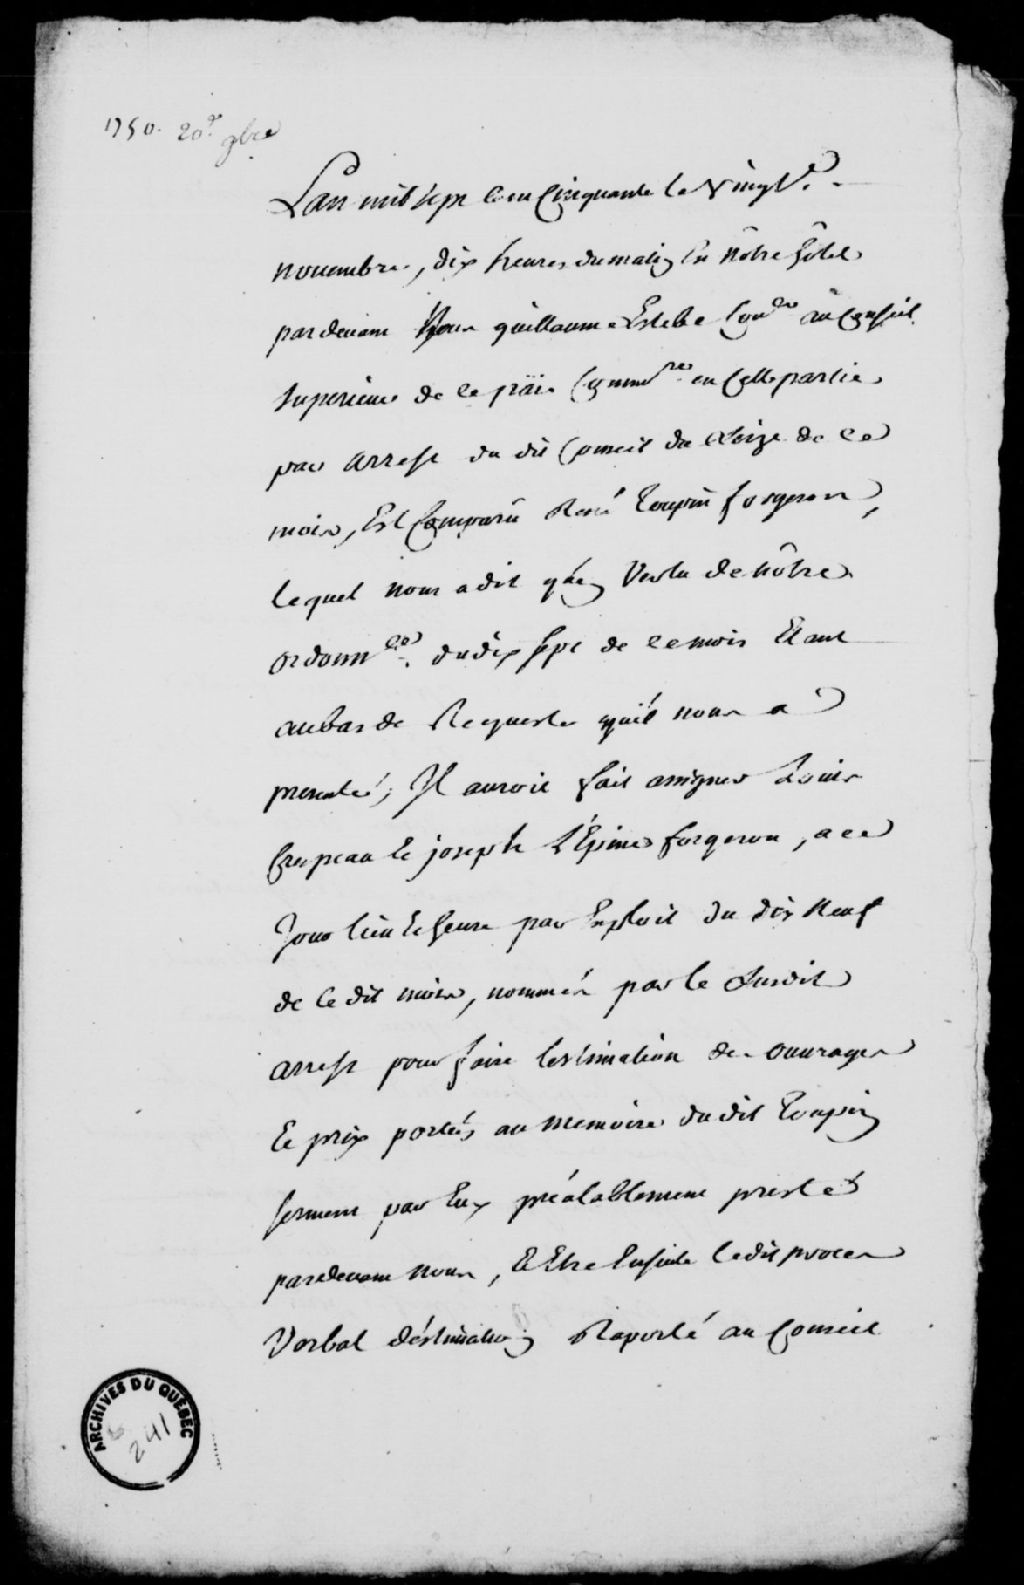 1750. 20e. 9bre
Lan mil sept cen cinquante le vingte.
novembre, dix heures du matin En nôtre hôtel
pardevant Nous guillaume Estebe Coner. au Conseil
superieur de ce païs Commre. en cette partie
par arrest du dit Conseil du seize de ce
mois, Est Comparu René toupin forgeron,
lequel nous a dit qu'en vertu de nôtre
ordonnce. du dix sept de ce mois Etant
au bas de Requeste qu'il nous a
presenté, Il auroit fait assigner Louis
Crepeau Et joseph L'Epine forgeron, a ce
Jour lieu Et heure par Exploit du dix neuf
de ce dit mois, nommés par le susdit
arrest pour faire lestimation des ouvrages
Et prix portés au memoire du dit toupin
serment par Eux préalablement presté
pardevant nous, Et Etre Ensuite le dit proces
verbal déstimation Raporté au Conseil
ARCHIVES DU QUÉBEC
241